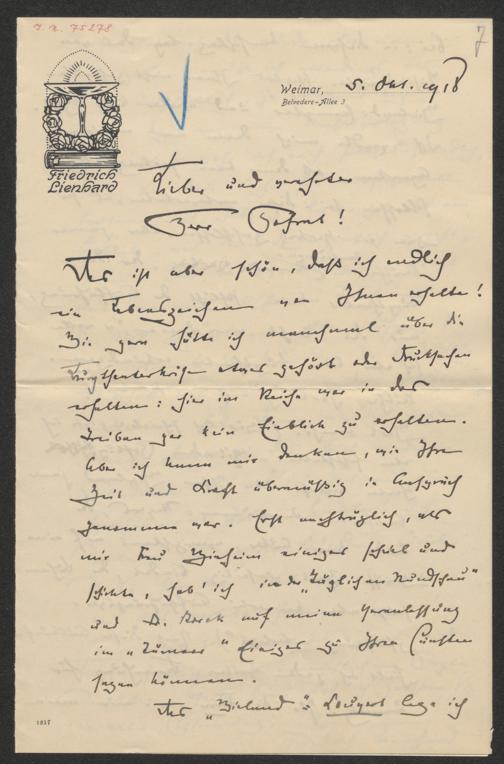 J. N. 75278
7
Friedrich
Lienhard
Weimar, 5. Okt. 1918
Belvedere-Allee 3
Lieber und verehrter
Herr !
Das ist aber schön, daß ich endlich
ein Lebenszeichen von Ihnen erhalte!
Wie gern hätte ich manchmal über die
Burgtheaterkrise etwas gehört oder Drucksachen
erhalten: hier im Reiche war in das
Treiben gar kein Einblick zu erhalten.
Aber ich kann mir denken, wie Ihre
Zeit und Kraft übermäßig in Anspruch
genommen war. Erst nachträglich, als
mir Frau einiges schrieb und
schickte, hab' ich in der "Täglichen Rundschau"
und Dr. auf meine Veranlassung
im "Türmer" Einiges zu Ihren Gunsten
sagen können.
Das "Wieland"= lege ich
1837